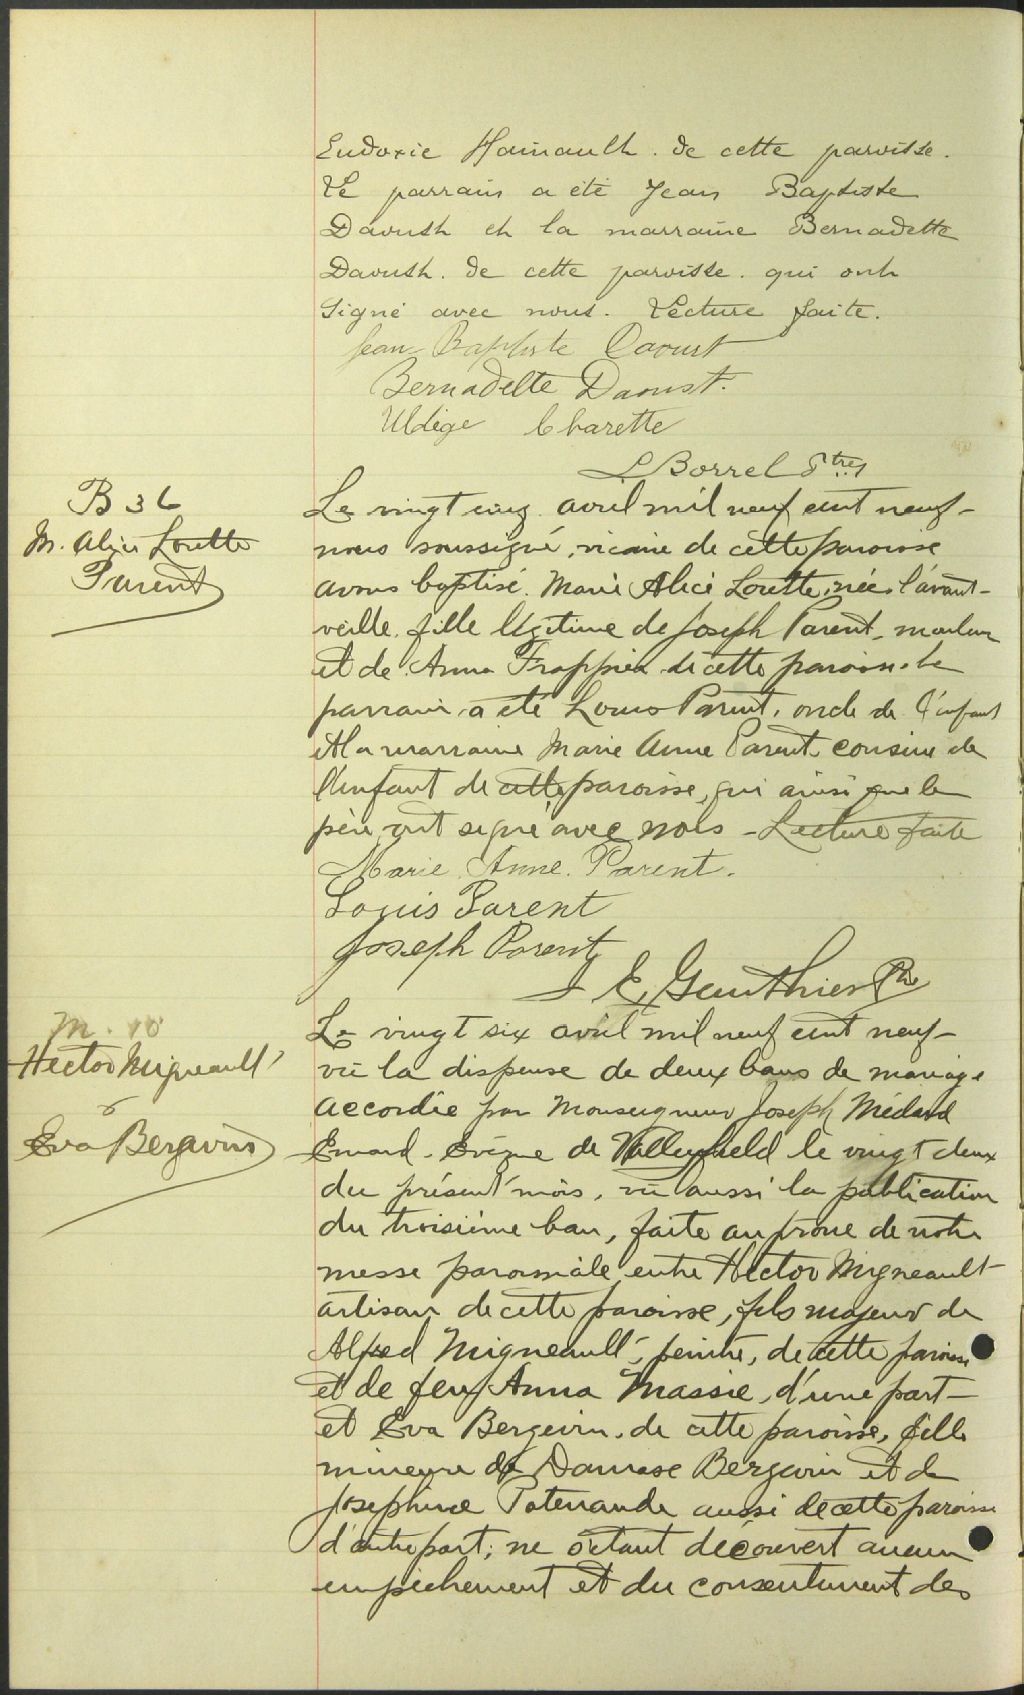 Eudoxie Hainault. de cette paroisse.
Le parrain a été Jean Baptiste
Davusth et la marraine Bernadette
Davusth. de cette paroisse. qui ont
signé avec nous. Lecture faite.
Jean Baptiste Daoust
Bernadette Daoust.
Uldége Charette
L Borrel Ptre
B 36
M. Alice Lorette
Parent
Le vingt cinq avril mil neuf cent neuf-
nous soussigné, vicaire de cette paroisse
avons baptisé. Marie Alice Lorette, née l'avant-
veille, fille légitime de Joseph Parent, mouleur
et de Anna Frappier de cette paroisse. Le
parrain a été Louis Parent, oncle de l'enfant
et la marraine Marie Anne Parent cousine de
l'enfant de cette paroisse, qui ainsi que le
père ont signé avec nous - Lecture faite
Marie Anne. Parent.
Louis Parent
Joseph Parent
J E Gauthier Ptre
M. 10
Hector Migneault
&
Eva Bergevin
Le vingt six avril mil neuf cent neuf-
vu la dispense de deux bans de mariage
accordée par Monseigneur Joseph Médard
Emard. Evêque de Valleyfield le vingt deux
du présent mois, vu aussi la publication
du troisième ban, faite au prône de notre
messe paroissiale, entre Hector Migneault
artisan de cette paroisse, fils majeur de
Alfred Migneault, peintre, de cette paroisse
et de feu Anna Massie, d'une part-
et Eva Bergevin, de cette paroisse, fille
mineure de Damase Bergevin et de
Josephine Patenaude aussi de cette paroisse
d'autre part; ne s'étant découvert aucun
empêchement et du consentement des